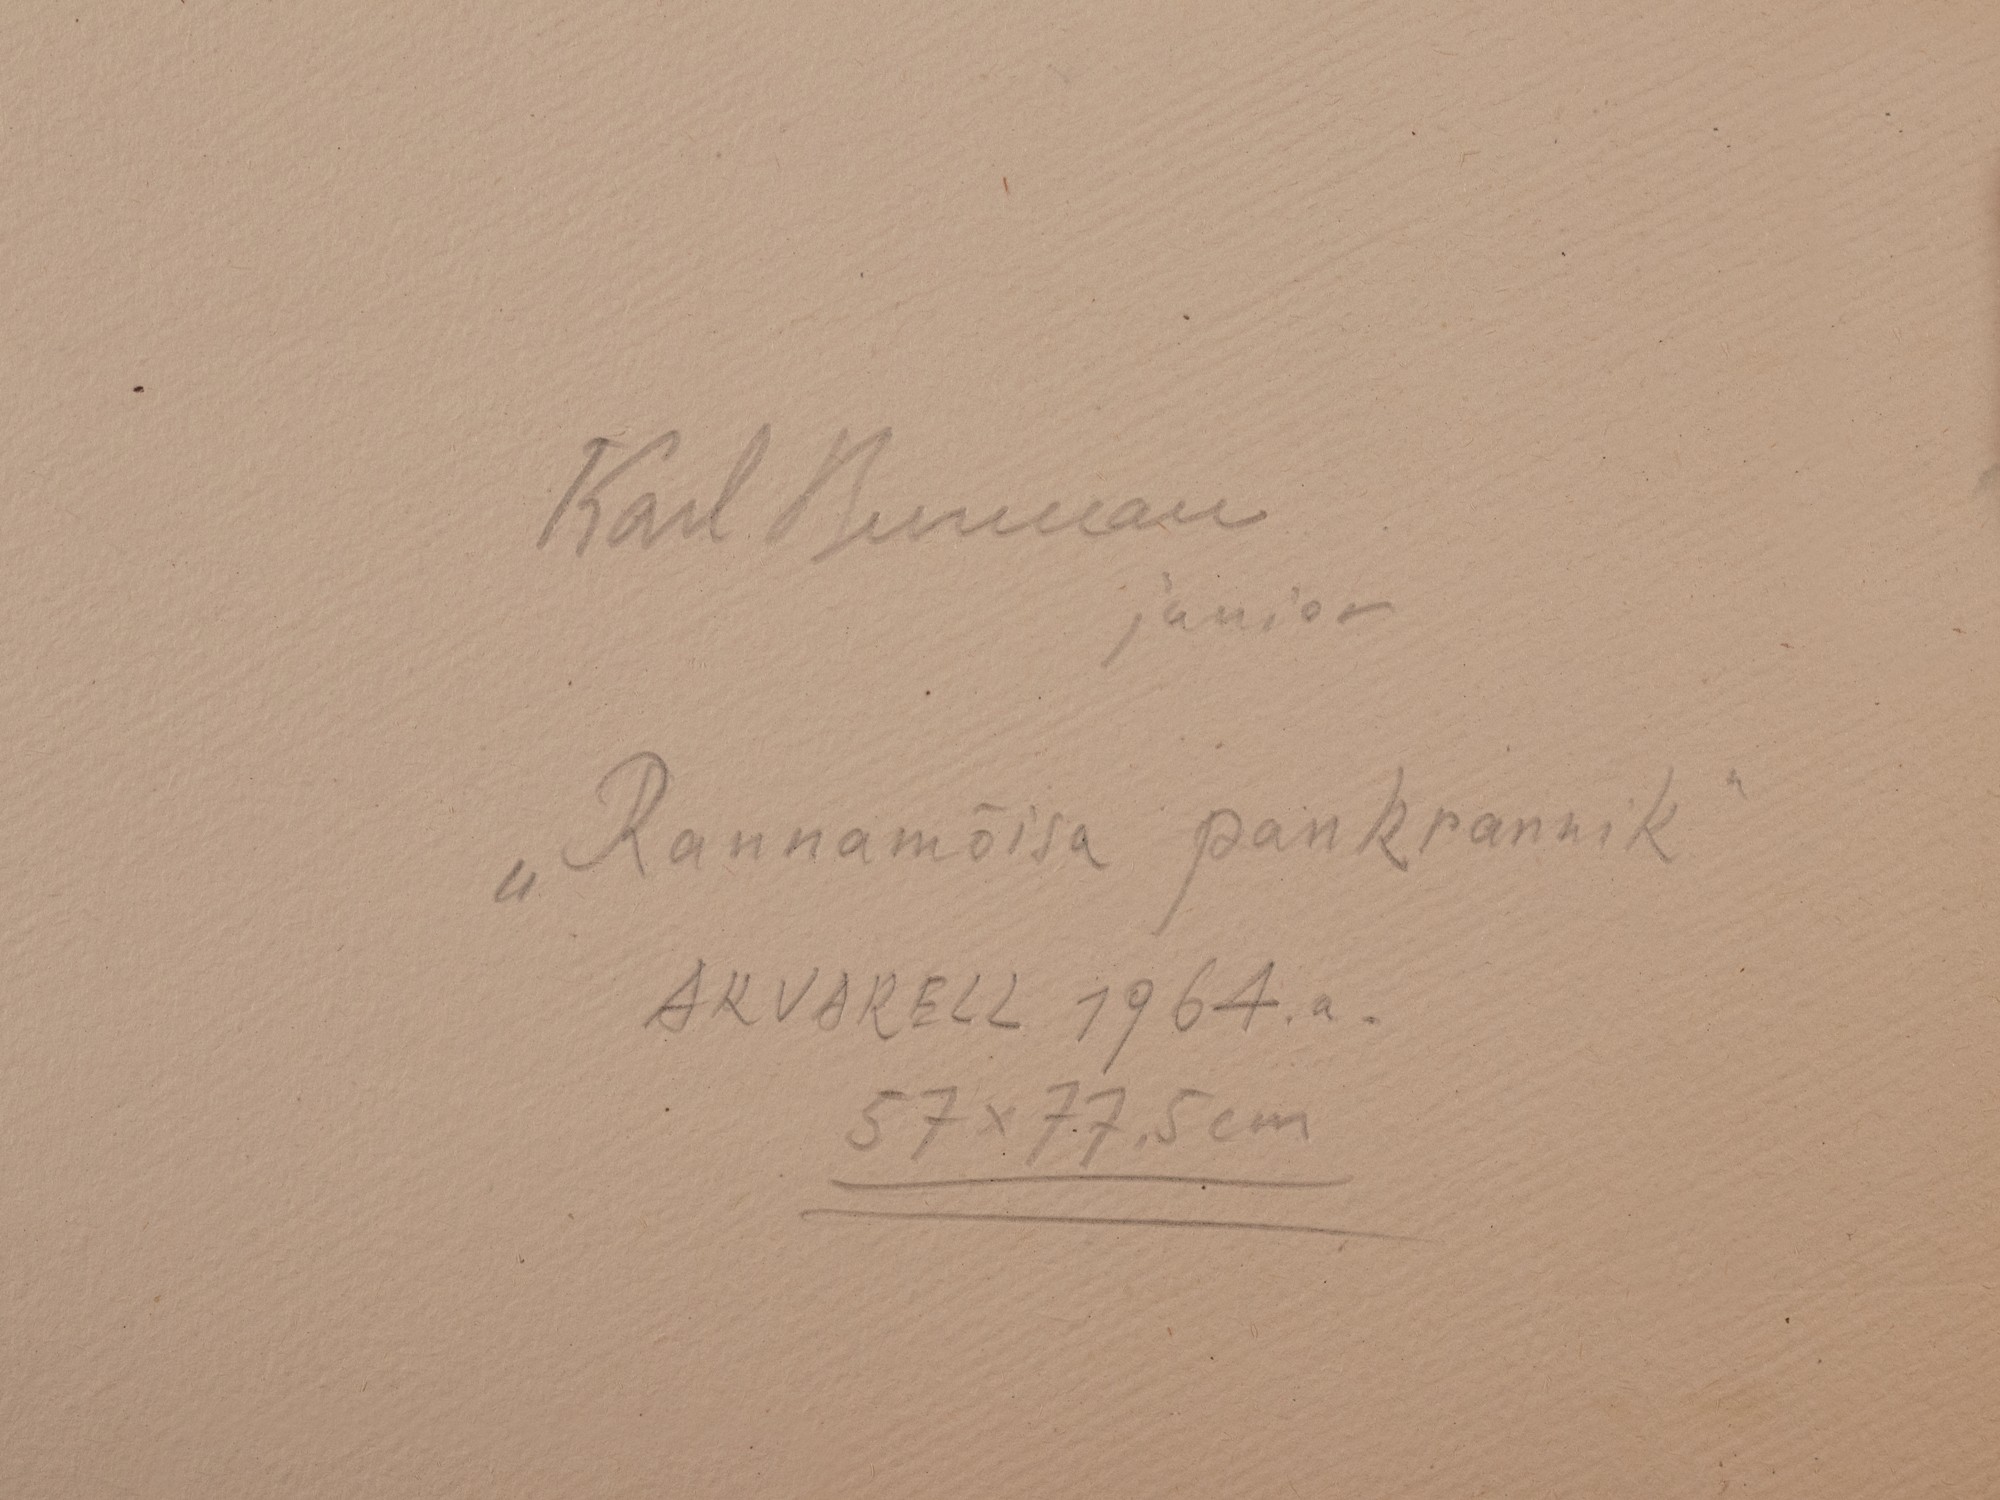 Karl Burman
junior
„Rannamõisa pankrannik"
AKVARELL 1964.a.
57×77,5cm